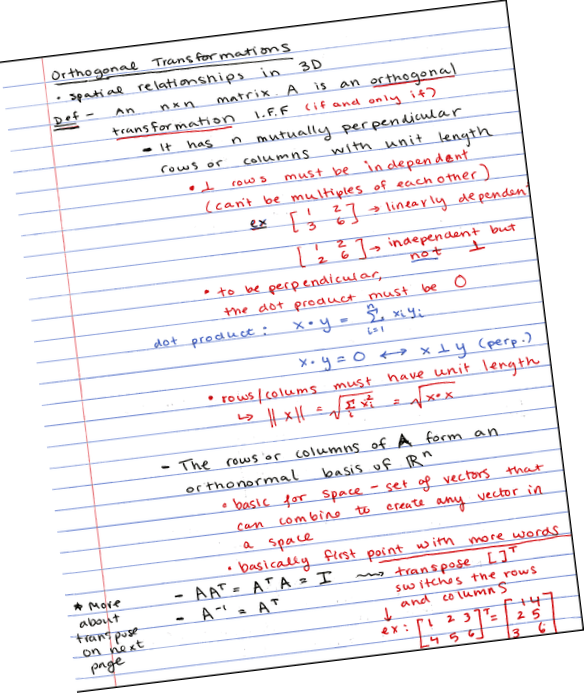 Orthogonal Transformations
• spatial relationships in 3D
Def - An nxn matrix A is an orthogonal
transformation I.F.F (if and only if)
- It has n mutually perpendicular
rows or columns with unit length
• ⊥ rows must be independent
(can't be multiples of each other)
ex [1 2; 3 6] → linearly dependent
[1 2; 2 6] → independent but
not ⊥
• to be perpendicular,
the dot product must be 0
dot product: x • y = Σ_{i=1}^{n} x_i y_i
x • y = 0 ↔ x ⊥ y (perp.)
• rows/colums must have unit length
↳ ||x|| = √(Σ_i x_i^2) = √(x•x)
- The rows or columns of A form an
orthonormal basis of ℝ^n
• basic for space - set of vectors that
can combine to create any vector in
a space
• basically first point with more words
- AA^T = A^T A = I ⟿ transpose [ ]^T
switches the rows
and columns
- A^-1 = A^T
* More
about
transpose
on next
page
ex: [1 2 3; 4 5 6]^T = [1 4; 2 5; 3 6]